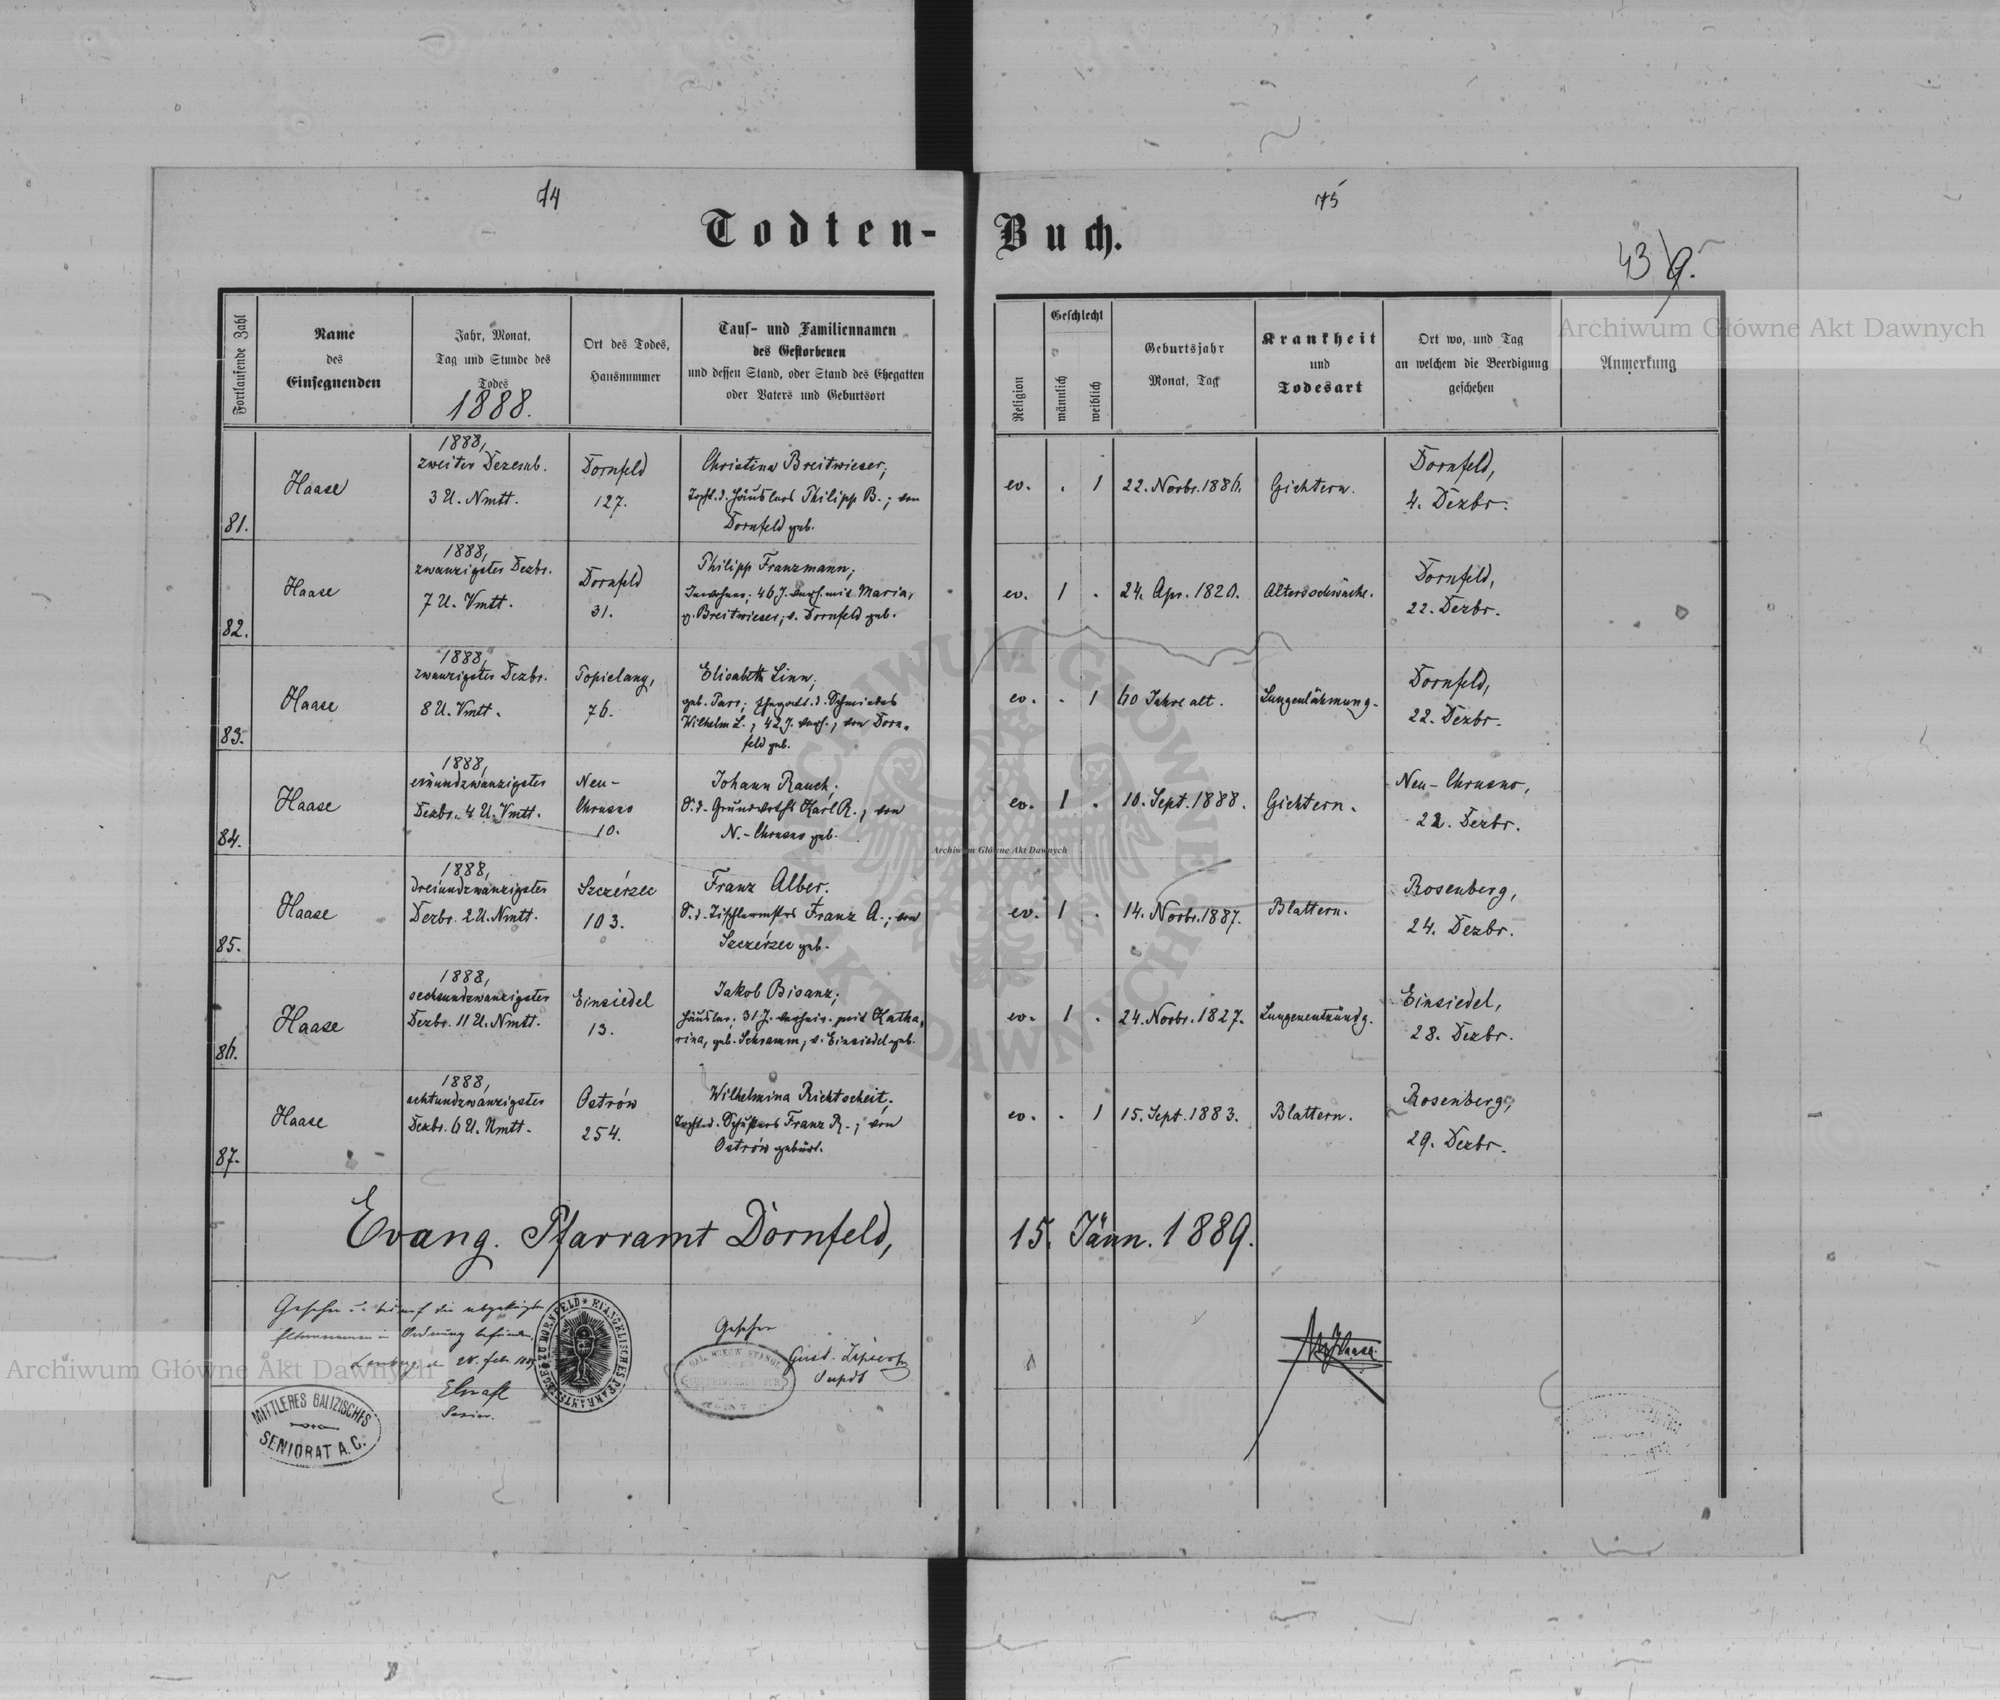 74
75
Todten-
Buch.
43
Archiwum Główne Akt Dawnych
Fortlaufende Zahl
Name
des
Einsegnenden
Jahr, Monat,
Tag und Stunde des
Todes
1888.
Ort des Todes,
Hausnummer
Tauf- und Familiennamen
des Gestorbenen
und dessen Stand, oder Stand des Ehegatten
oder Vaters und Geburtsort
Religion
Geschlecht
männlich
weiblich
Geburtsjahr
Monat, Tag
Krankheit
und
Todesart
Ort wo, und Tag
an welchem die Beerdigung
geschehen
Anmerkung
81.
Haase
1888,
zweiter Dezemb.
3 U. Nmtt.
Dornfeld
127.
Christina Breitwieser;
Tocht. d. Häuslers Philipp B.; von
Dornfeld geb.
ev. . 1
22. Novbr. 1886.
Gichtern.
Dornfeld,
4. Dezbr.
82.
Haase
1888,
zwanzigster Dezbr.
7 U. Vmtt.
Dornfeld
31.
Philipp Franzmann;
Inwohner; 46 J. verh. mit Maria,
g. Breitwieser; v. Dornfeld geb.
ev. 1 .
24. Apr. 1820.
Altersschwäche.
Dornfeld,
22. Dezbr.
83.
Haase
1888,
zwanzigster Dezbr.
8 U. Vmtt.
Topielang,
76.
Elisabeth Linn;
geb. Parr; Ehegatt. d. Schmiedes
Wilhelm L.; 42 J. verh.; von Dorn-
feld geb.
ev. . 1
60 Jahre alt.
Lungenlähmung.
Dornfeld,
22. Dezbr.
84.
Haase
1888,
einundzwanzigster
Dezbr. 4 U. Vmtt.
Neu-
Chrusno
10.
Johann Rauch;
S. d. Grundwirths Karl R.; von
N.-Chrusno geb.
ev. 1 .
10. Sept. 1888.
Gichtern.
Neu-Chrusno,
22. Dezbr.
85.
Haase
1888,
dreiundzwanzigster
Dezbr. 2 U. Nmtt.
Szczérzec
103.
Franz Alber.
S. d. Tischlermstrs Franz A.; von
Szczérzec geb.
ev. 1 .
14. Novbr. 1887.
Blattern.
Rosenberg,
24. Dezbr.
86.
Haase
1888,
sechsundzwanzigster
Dezbr. 11 U. Nmtt.
Einsiedel
13.
Jakob Bisanz;
Häusler; 31 J. verheir. mit Katha-
rina, geb. Schramm; v. Einsiedel geb.
ev. 1 .
24. Novbr. 1827.
Lungenentzündg.
Einsiedel,
28. Dezbr.
87.
Haase
1888,
achtundzwanzigster
Dezbr. 6 U. Nmtt.
Ostrów
254.
Wilhelmina Richtscheit;
Tocht. d. Schusters Franz R.; von
Ostrów gebürt.
ev. . 1
15. Sept. 1883.
Blattern.
Rosenberg,
29. Dezbr.
Evang. Pfarramt Dornfeld,
15. Jänn. 1889.
Gesehen
in Ordnung befunden.
Lemberg
Senior.
EVANGELISCHES PFARRAMTS SIEGEL ZU DORNFELD
Gesehen
Supdt
Haase
MITTLERES GALIZISCHES
SENIORAT A. C.
Archiwum Główne Akt Dawnych
Archiwum Główne Akt Dawnych
ARCHIWUM GŁÓWNE AKT DAWNYCH